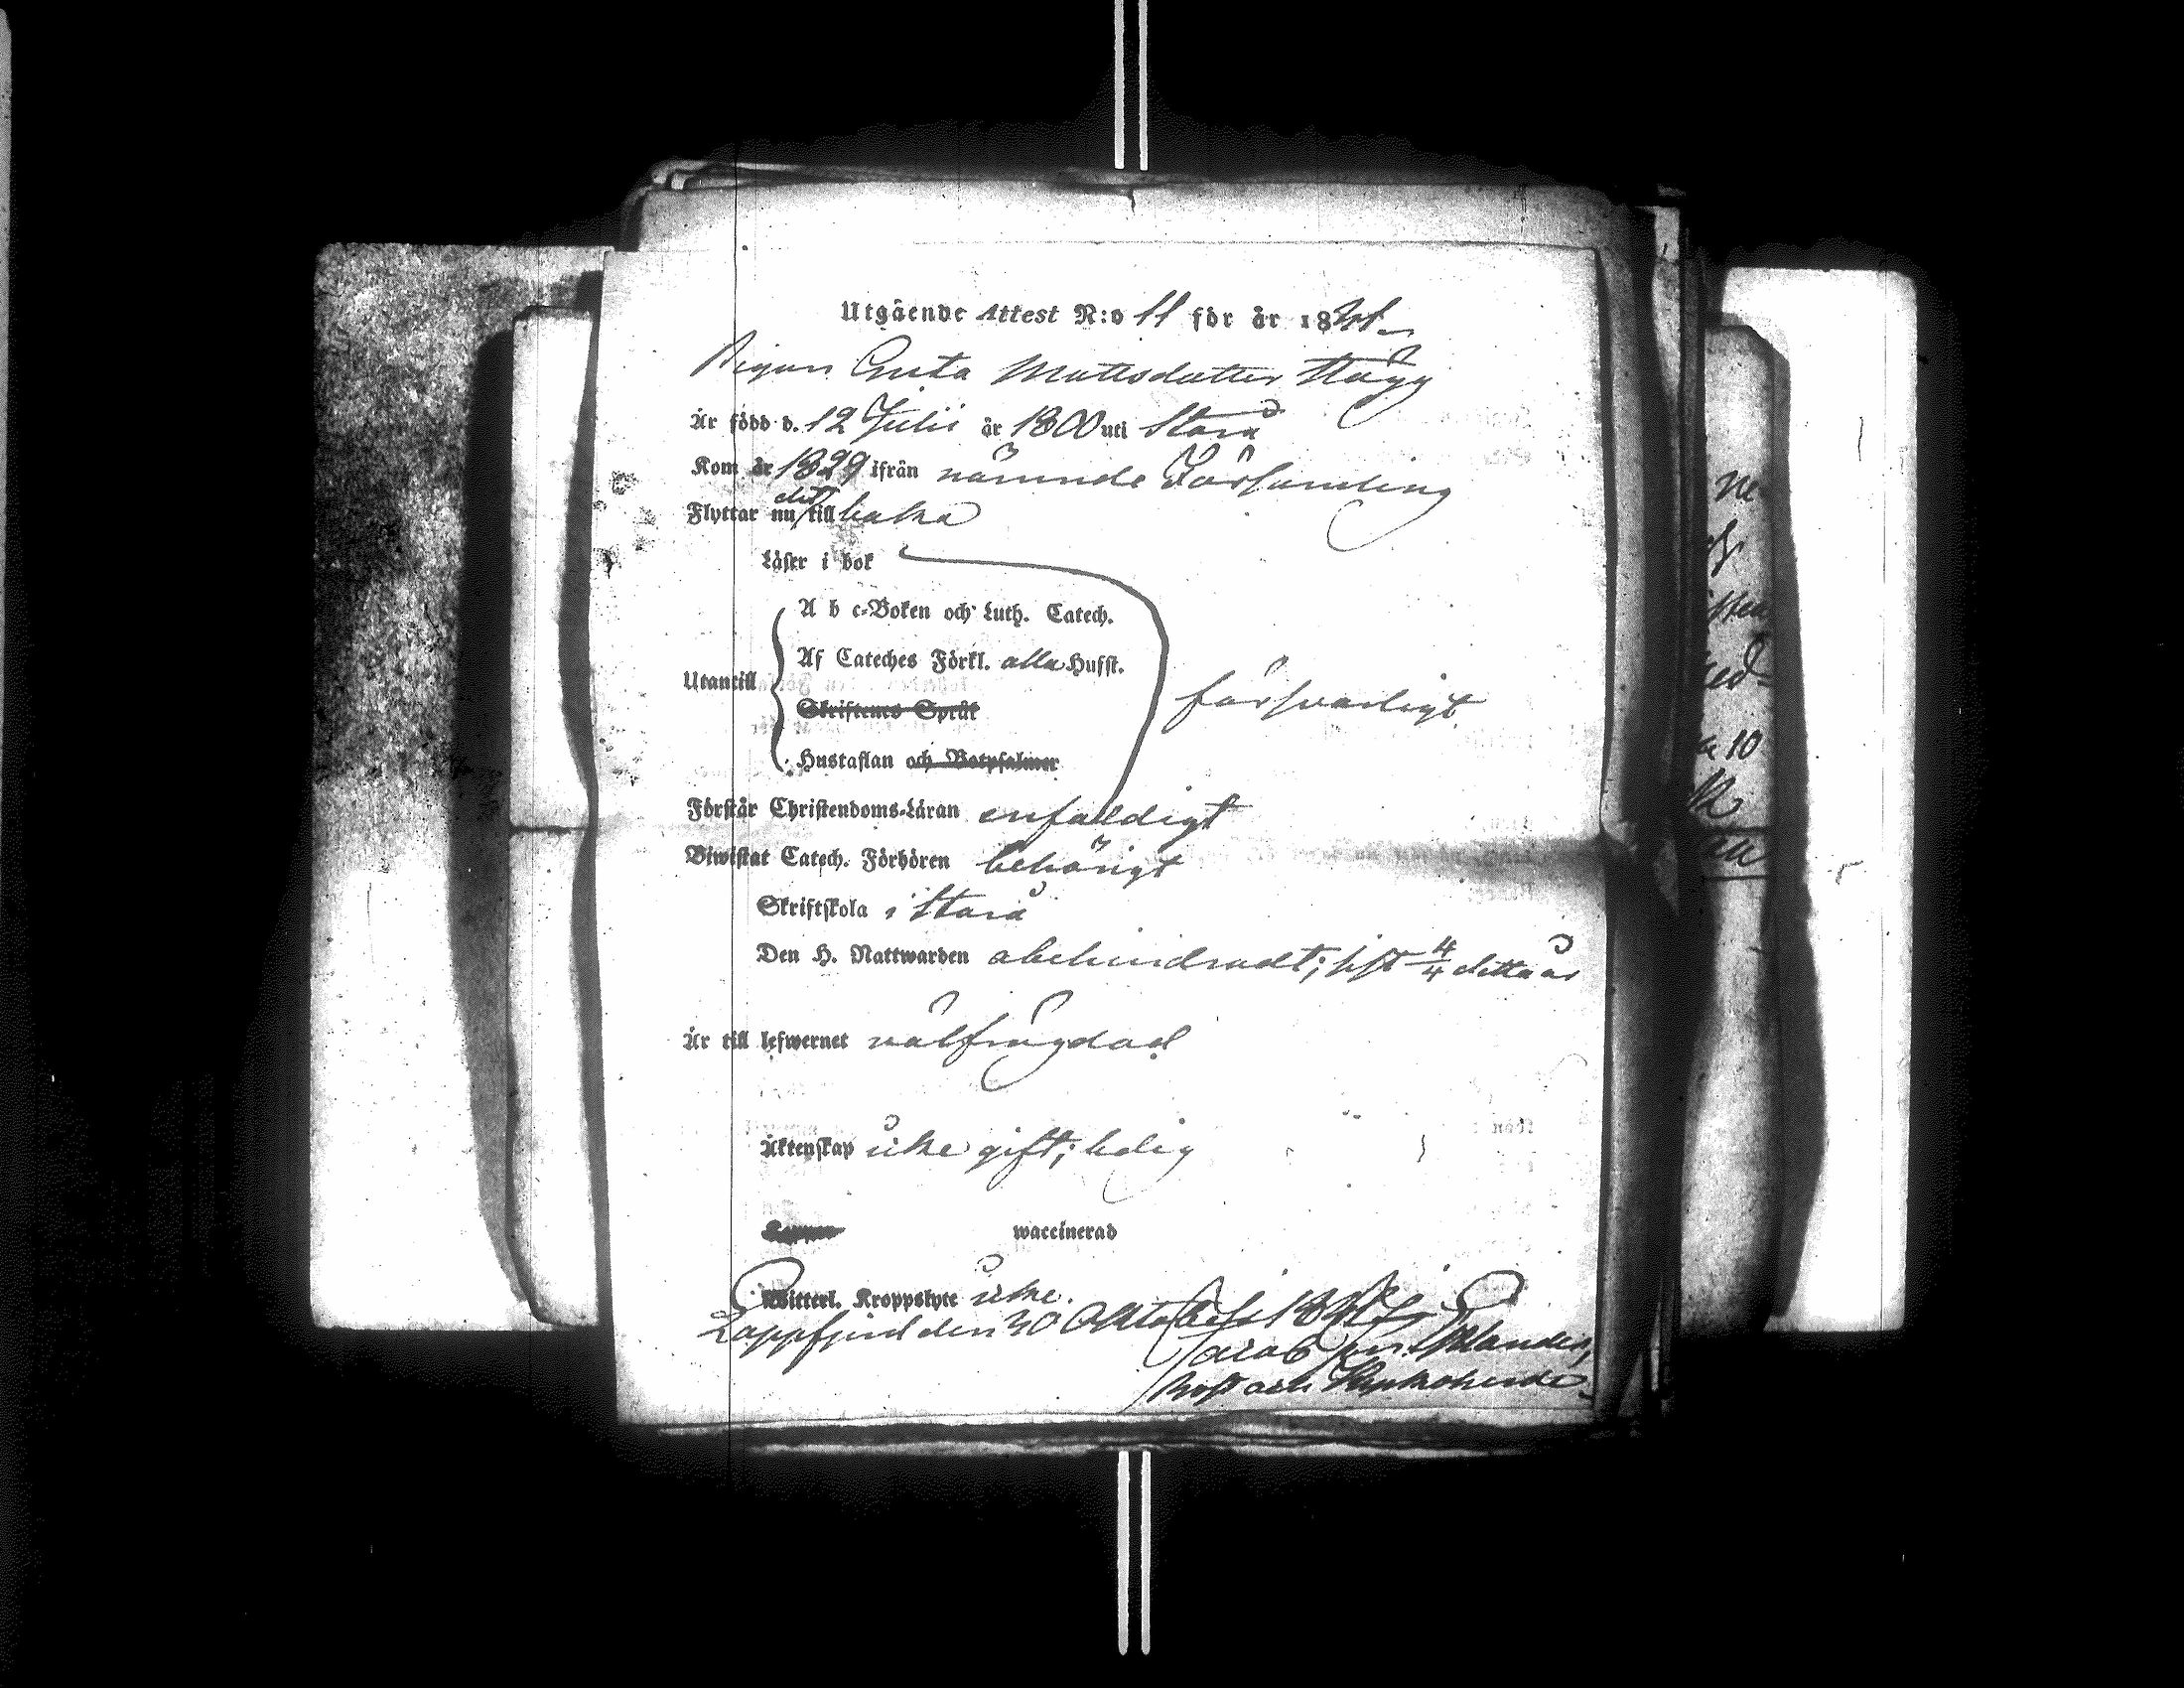 Utgående Attest N:o 11 för år 1831
Pigan Greta Mattsdotter Hägg
Är född d. 12 Julii år 1800 uti Storå
Kom år 1829 ifrån nämnde Församling
Flyttar nu dit tillbaka
Läser i bok
A b c-Boken och Luth. Catech.
Af Cateches Förkl. alla Hufst.
Utantill
Skriftenes Språk
försvarligt
Hustaflan och Botpsalmer
Förstår Christendoms-Läran enfaldigt
Biwistat Catech. Förhören behörigt
Skriftskola i Storå
Den H. Nattwarden obehindradt; sist 4/4 detta år
Är till lefwernet välfrägdad
Äktenskap icke gift; ledig
waccinerad
Witterl. Kroppslyte icke.
Lappfjerd den 30 October 1831
Jacob
Prost och Kyrkoherde
ne-
10